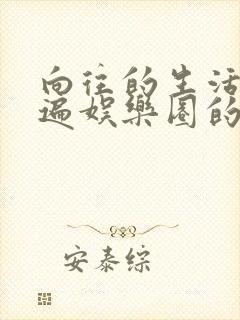 向往的生活
遍娱樂圈的
安泰綜